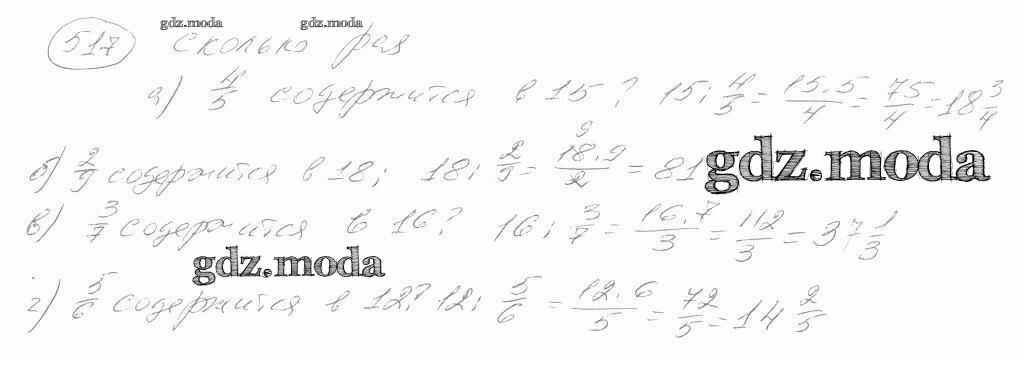 gdz.moda gdz.moda
517 Сколько раз
а) 4/5 содержится в 15? 15 : 4/5 = 15·5/4 = 75/4 = 18 3/4
б) 2/9 содержится в 18; 18 : 2/9 = 18·9/2 = 81
9
gdz.moda
в) 3/7 содержится в 16? 16 : 3/7 = 16·7/3 = 112/3 = 37 1/3
gdz.moda
г) 5/6 содержится в 12? 12 : 5/6 = 12·6/5 = 72/5 = 14 2/5